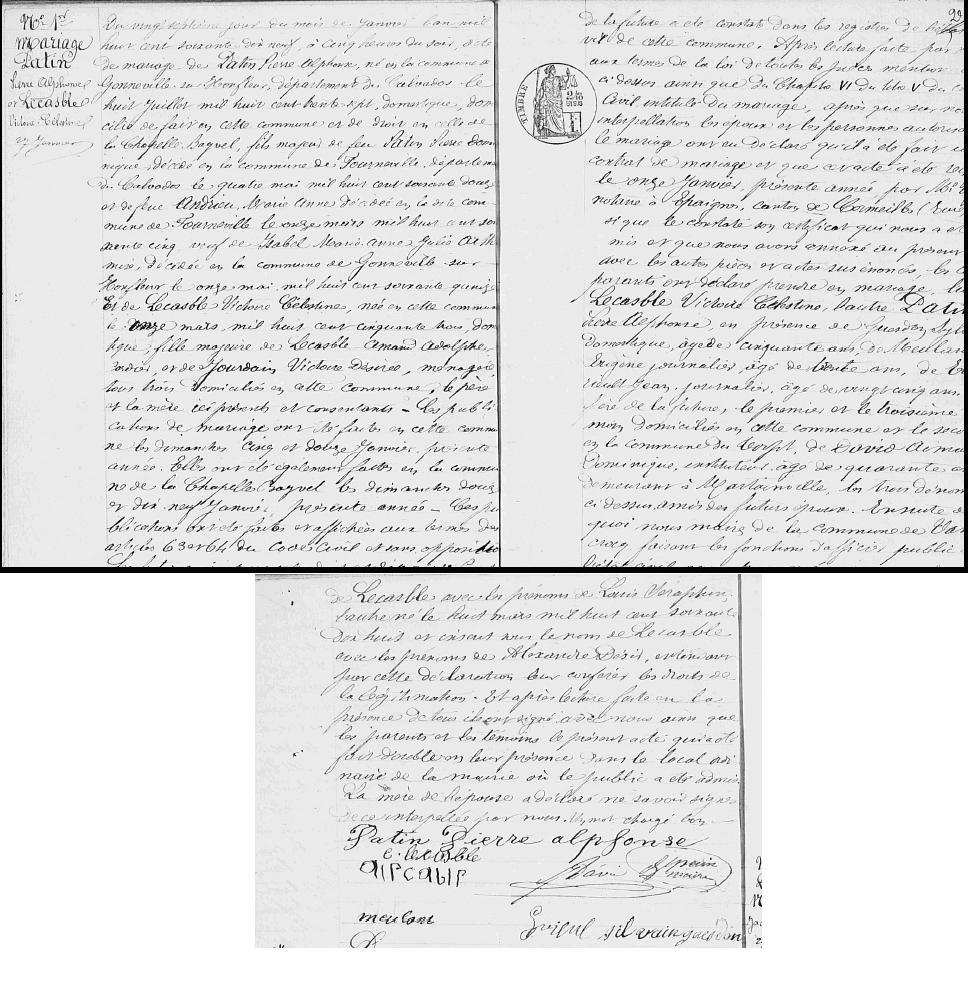 Nº 1er
Mariage
Patin
Pierre Alphonse
et Lecasble
Victoire Célestine
27 Janvier
Du vingt septième jour du mois de Janvier l'an mil
huit cent soixante dix neuf, à cinq heures du soir, acte
de mariage de Patin Pierre Alphonse, né en la commune de
Gonneville sur Honfleur, département du Calvados le
huit Juillet mil huit cent trente sept, domestique, domi
cilié de fait en cette commune et de droit en celle de
la Chapelle Bayvel, fils majeur de feu Patin Pierre Domi
nique, décédé en la commune de Fourneville, départeme
du Calvados le quatre mai mil huit cent soixante douze
et de feue Andrieu, Marie Anne décédée en la dite com
mune de Fourneville le onze mars mil huit cent soi
xante cinq veuf de Isabel Marie Anne
décédée en la commune de Gonneville sur
Honfleur le onze mai mil huit cent soixante quinze
Et de Lecasble Victoire Célestine, née en cette commun
le onze mars, mil huit cent cinquante trois, dom
tique, fille majeure de Lecasble Amand Adolphe,
et de Jourdain Victoire Désirée, ménagère
tous trois domiciliés en cette commune, le père
et la mère ici présents et consentants – Les publi
cations de mariage ont été faites en cette commu
ne les dimanches cinq et douze Janvier, présente
année. Elles ont été également faites en la commu
ne de la Chapelle Bayvel les dimanches douze
et dix neuf Janvier, présente année – Ces pu
blications ont été faites et affichées aux termes des
articles 63 et 64 du Code Civil et sans opposition
22
de la future a été constaté dans les registres de l'état
civil de cette commune. Après lecture faite par n
aux termes de la loi de toutes les pièces mention
ci dessus ainsi que du Chapitre VI du titre V du c
Civil intitulé du mariage, après que sur no
interpellation les époux et les personnes autoris
le mariage ont eu déclaré qu'il a été fait u
contrat de mariage et que ce acte a été reç
le onze Janvier, présente année par Me
notaire à Epaignes, canton de Cormeilles (Eure
si que le constate son certificat qui nous a et
mis et que nous avons annexé au présent
avec les autres pièces et actes susénoncés, les c
parents ont déclaré prendre en mariage, l'u
Lecasble Victoire Célestine, l'autre Patin
Pierre Alphonse, en présence de Guesdon Syl
domestique, âgé de cinquante ans, de Meulan
Eugène journalier, âgé de trente ans, de
Jean, journalier, âgé de vingt cinq ans
de la future, le premier et le troisième
moin domiciliés en cette commune et le seco
en la commune du Torpt, de David Aima
Dominique, instituteur, âgé de quarante a
demeurant à Martainville, les trois dénom
ci dessus amis des futurs époux. Ensuite d
quoi nous maire de la commune de Van
crocq faisant les fonctions d'officier public
TIMBRE
de Lecasble avec les prénoms de Louis Séraphin,
l'autre né le huit mars mil huit cent soixante
dix huit et inscrit sous le nom de Lecasble
avec les prénoms de Alexandre Désiré, entendant
par cette déclaration leur conférer les droits de
la légitimation. Et après lecture faite en la
présence de tous ils ont signé avec nous ainsi que
les parents et les témoins le présent acte qui a été
fait double en leur présence dans le local ordi
naire de la mairie où le public a été admis
La mère de l'épouse a déclaré ne savoir signer
de ce interpellée par nous. Un mot chargé bon –
Patin Pierre alphonse
c. lecasble
David
meulant
silvain guesdon